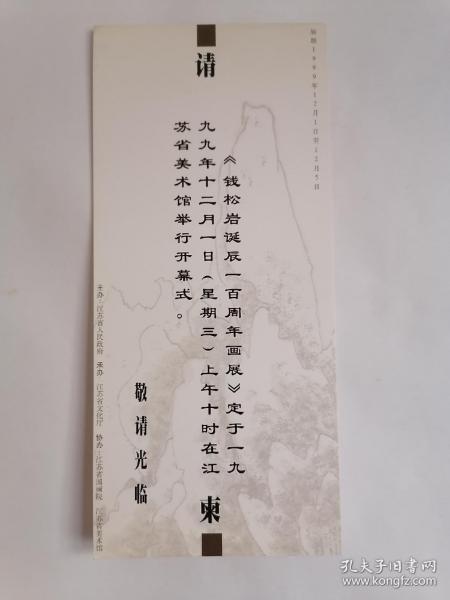 展期1999年12月1日至12月5日
请
柬
《钱松岩诞辰一百周年画展》定于一九
九九年十二月一日(星期三)上午十时在江
苏省美术馆举行开幕式。
敬请光临
主办:江苏省人民政府 承办:江苏省文化厅 协办:江苏省国画院 江苏省美术馆
孔夫子旧书网